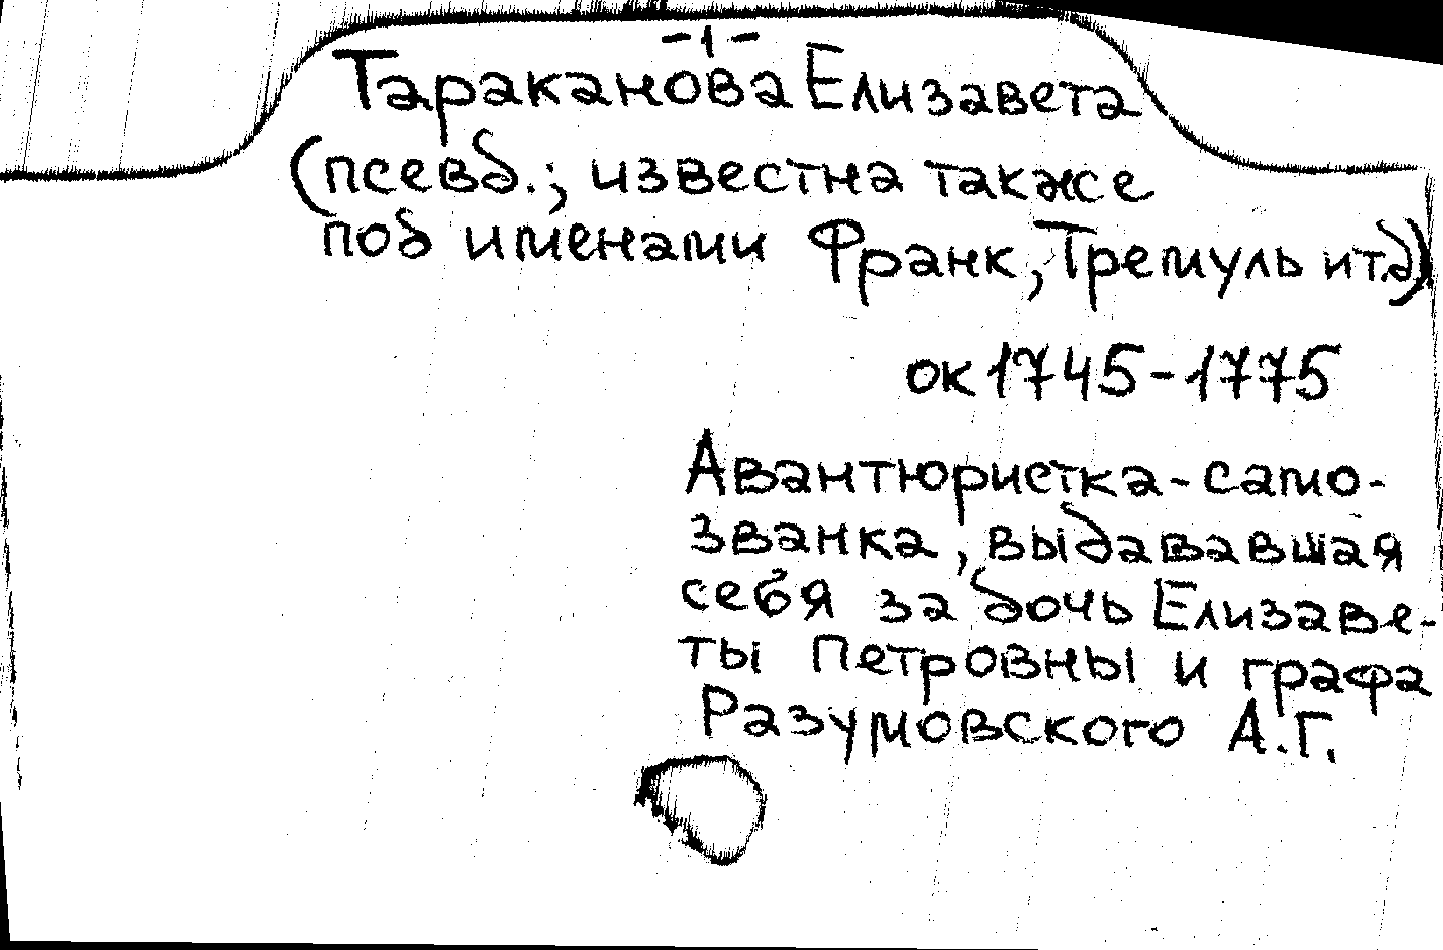 -1-
Тараканова Елизавета
(псевд.; известна также
под именами Франк, Тремуль и т.д.)
ок 1745-1775
Авантюристка-само-
званка, выдававшая
себя за дочь Елизаве-
ты Петровны и графа
Разумовского А.Г.